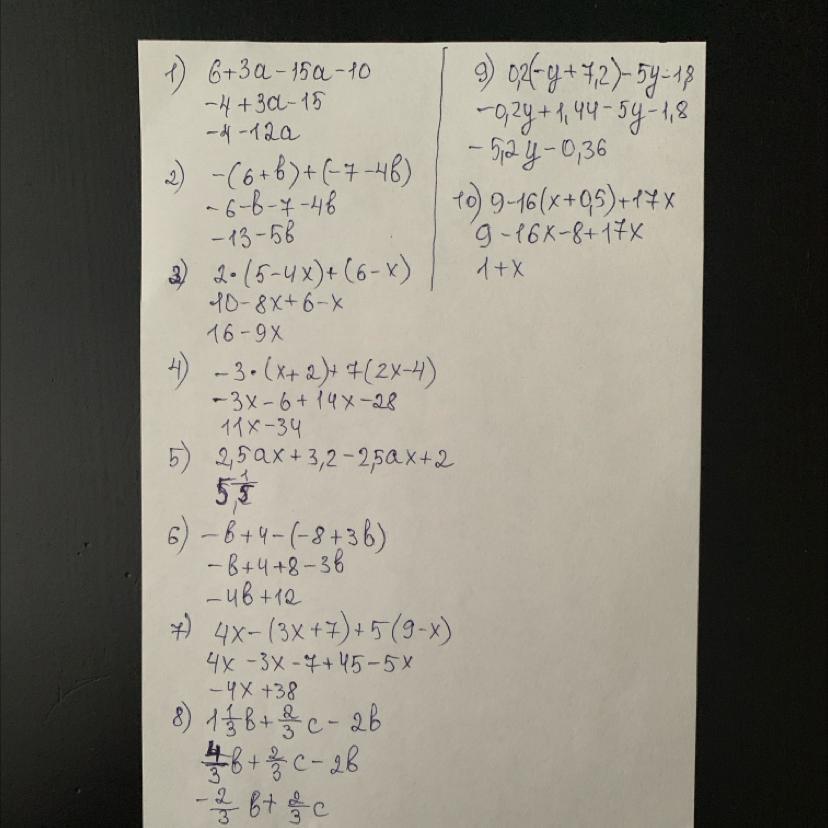 1) 6+3a-15a-10
-4+3a-15
-4-12a
2) -(6+b)+(-7-4b)
-6-b-7-4b
-13-5b
3) 2·(5-4x)+(6-x)
10-8x+6-x
16-9x
4) -3·(x+2)+7(2x-4)
-3x-6+14x-28
11x-34
5) 2,5ax+3,2-2,5ax+2
6) -b+4-(-8+3b)
-b+4+8-3b
-4b+12
7) 4x-(3x+7)+5(9-x)
4x-3x-7+45-5x
-4x+38
8) 1 1/3 b + 2/3 c - 2b
4/3 b + 2/3 c - 2b
-2/3 b + 2/3 c
9) 0,2(-y+7,2)-5y-1,8
-0,2y+1,44-5y-1,8
-5,2y-0,36
10) 9-16(x+0,5)+17x
9-16x-8+17x
1+x